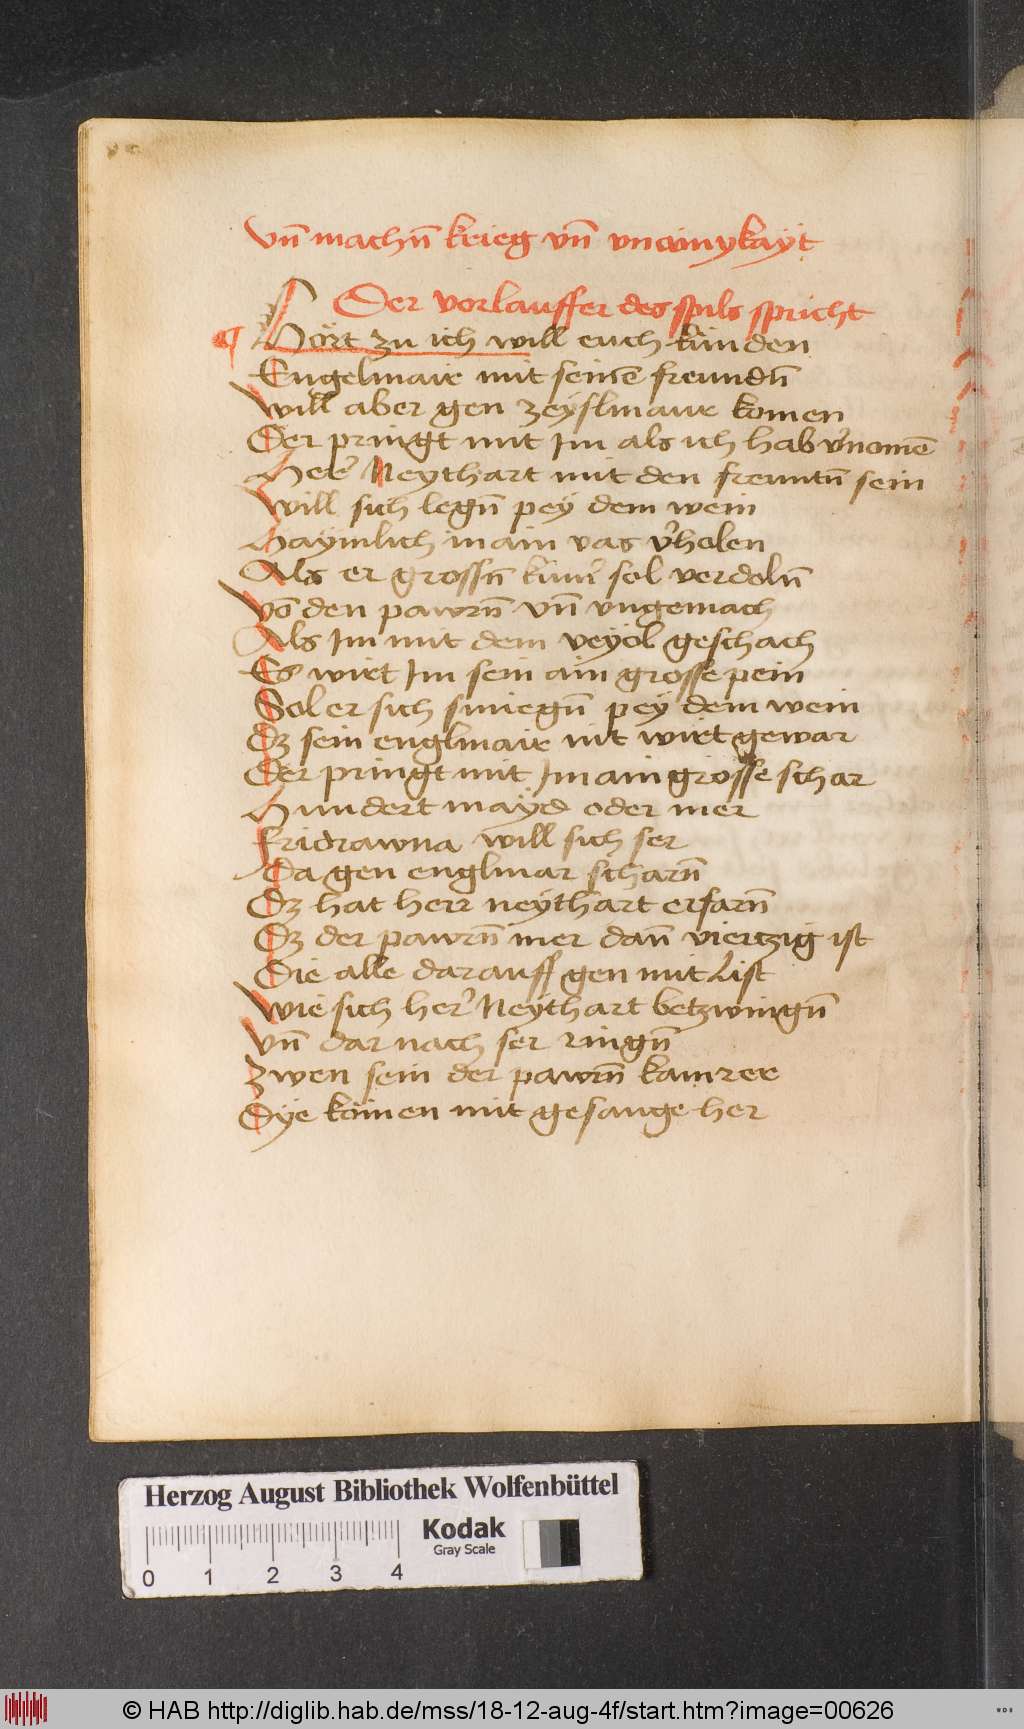 vn̄ machn̄ krieg vn̄ vnainykayt
Der vorlauffer des spils spricht
Hört zu ich will euch künden
Engelmair mit seinē freundn̄
Will aber gen zeyslmaur komen
Der pringt mit Im als ich hab v̓nomē
Her̓ Neythart mit den freuntn̄ sein
Will sich legn̄ pey dem wein
Haymlich in ain vas v̓holen
Als er grossn̄ kum̓ sol verdoln̄
Vō den pawrn̄ vn̄ vngemach
Als Im mit dem veyol geschach
Es wirt Im sein ain grosse pein
Sol er sich smiegn̄ pey dem wein
Dz sein englmair nit wirt gewar
Der pringt mit Im ain grosse schar
Hundert mayd oder mer
Fridrawna will sich ser
Da gen englmar scharn̄
Dz hat herr neythart erfarn̄
Dz der pawrn̄ mer dan̄ viertzig ist
Die alle darauff gen mit List
Wie sich her̓ Neythart betzwingn̄
Vn̄ dar nach ser ringn̄
Zwen sein der pawrn̄ kamrer
Dye kömen mit gesange her
Herzog August Bibliothek Wolfenbüttel
Kodak
Gray Scale
0 1 2 3 4
© HAB http://diglib.hab.de/mss/18-12-aug-4f/start.htm?image=00626